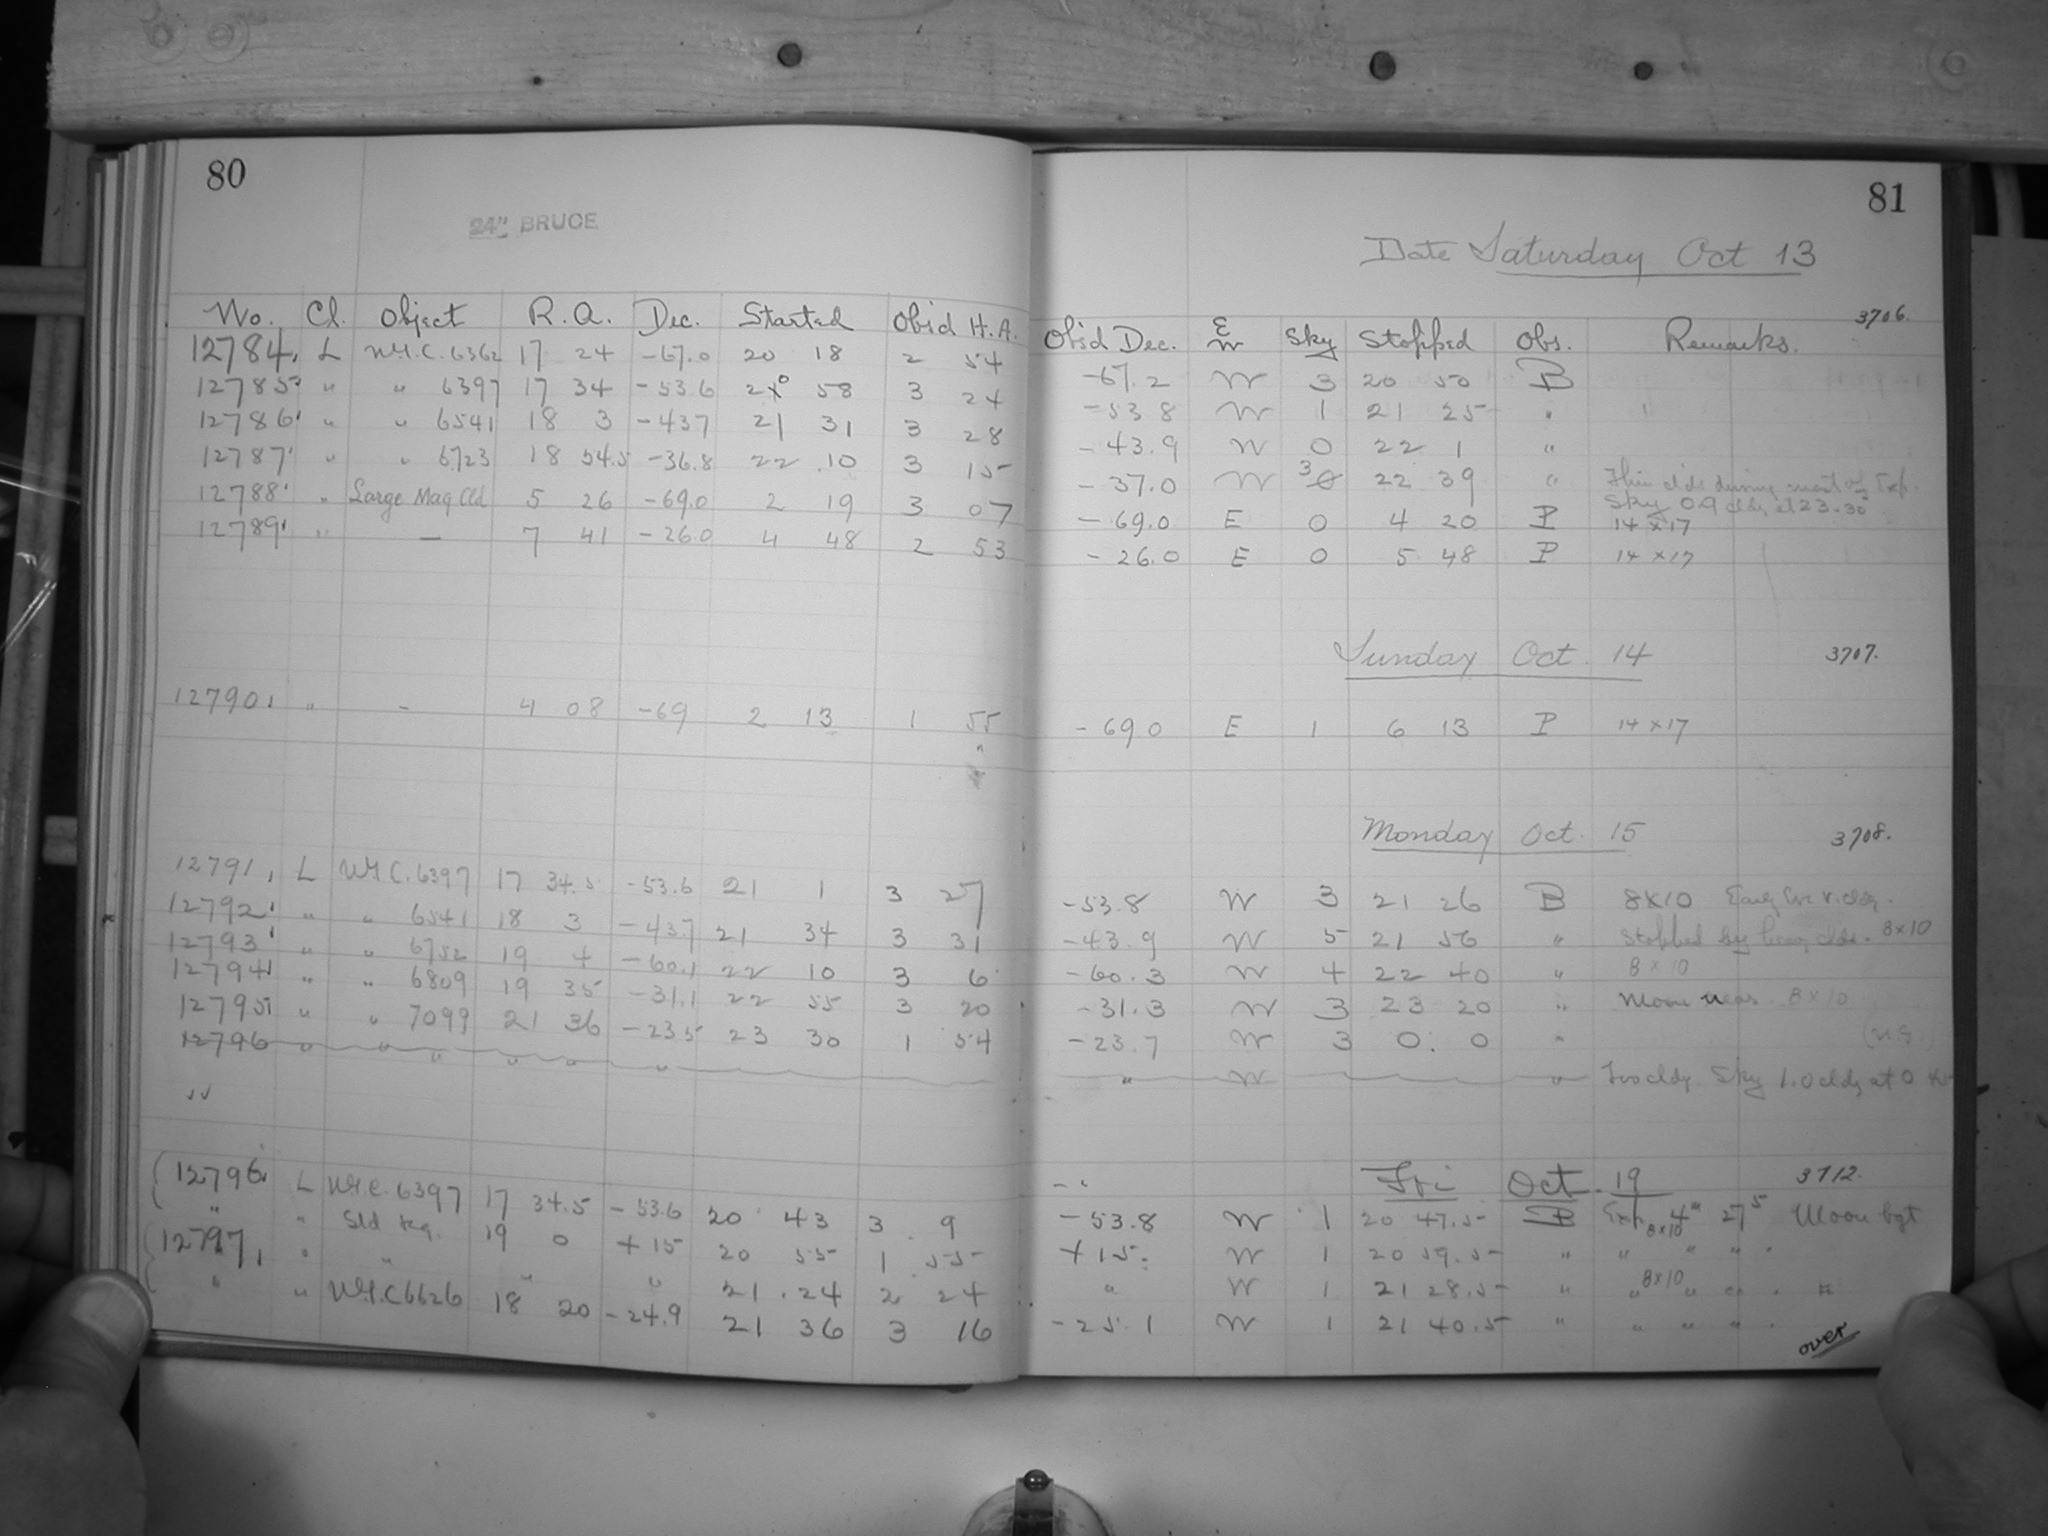 80
24" BRUCE
No. Cl. Object R.A. Dec. Started Obsd H.A.
12784 L N.G.C. 6362 17 24 -67.0 20 18 2 54
12785 " " 6397 17 34 -53.6 20 58 3 24
12786 " " 6541 18 3 -43.7 21 31 3 28
12787 " " 6723 18 54.5 -36.8 22 10 3 15
12788 " Large Mag Cld 5 26 -69.0 2 19 3 07
12789 " — 7 41 -26.0 4 48 2 53
12790 " - 4 08 -69 2 13 1 55
12791 L N.G.C. 6397 17 34.5 -53.6 21 1 3 27
12792 " " 6541 18 3 -43.7 21 34 3 31
12793 " " 6752 19 4 -60.1 22 10 3 6
12794 " " 6809 19 35 -31.1 22 55 3 20
12795 " " 7099 21 36 -23.5 23 30 1 54
12796 " " " " " "
" 
12796 L N.G.C. 6397 17 34.5 -53.6 20 43 3 9
" " Std reg. 19 0 +15 20 55 1 55
12797 " " " " 21 24 2 24
" " N.G.C 6626 18 20 -24.9 21 36 3 16
81
Date Saturday Oct 13
3706.
Obs'd Dec. E W Sky Stopped Obs. Remarks.
-67.2 W 3 20 50 B
-53.8 W 1 21 25 "
-43.9 W 0 22 1 "
-37.0 W 3 22 39 " Thin clds during most of Exp.
Sky 0.9 cldy at 23.30
-69.0 E 0 4 20 P 14 x 17
-26.0 E 0 5 48 P 14 x 17
Sunday Oct. 14 3707.
-69.0 E 1 6 13 P 14 x 17
Monday Oct. 15 3708.
-53.8 W 3 21 26 B 8x10 Early Eve v. cldy.
-43.9 W 5 21 56 " Stopped by heavy clds. 8x10
-60.3 W 4 22 40 " 8x10
-31.3 W 3 23 20 " Moon near 8x10
-23.7 W 3 0. 0 "
" W " Too cldy. Sky 1.0 cldy at 0
Fri Oct. 19 3712.
-53.8 W 1 20 47.5 B Exp. 4m 27s Moon bgt
8x10
+15. W 1 20 59.5 " " " " "
" W 1 21 28.5 " " 8x10 " " "
-25.1 W 1 21 40.5 " " " " "
over